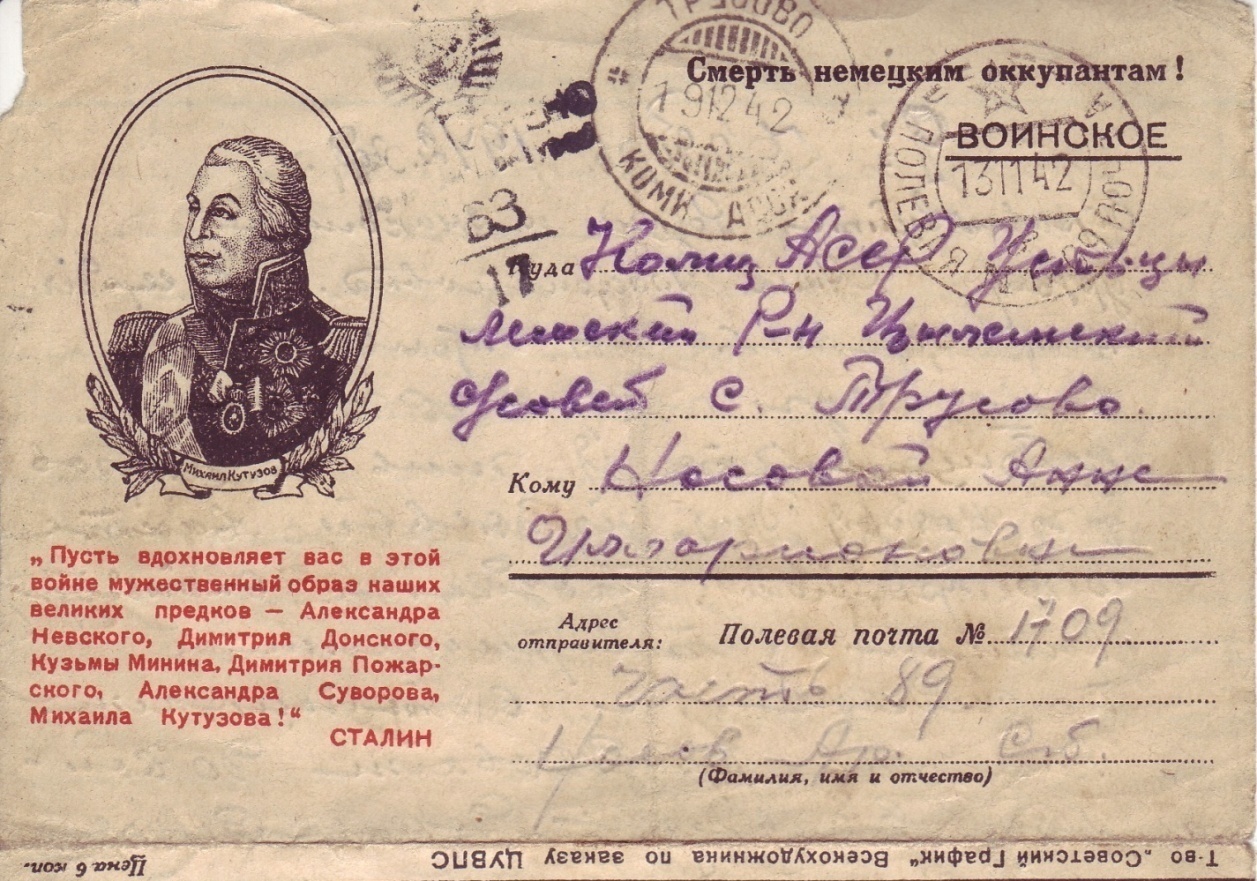 Смерть немецким оккупантам!
ВОИНСКОЕ
ТРУСОВО
191242
КОМИ АССР
ПОЛЕВАЯ
131142
63
17
Куда Коми АССР Усть-Цы
лемский Р-н Цилемский
с/совет с. Трусово.
Кому Носовой Анне
Илларионовне
Адрес отправителя: Полевая почта № 1709
часть 89
Носов Ар.
(Фамилия, имя и отчество)
Михаил Кутузов
„Пусть вдохновляет вас в этой
войне мужественный образ наших
великих предков — Александра
Невского, Димитрия Донского,
Кузьмы Минина, Димитрия Пожар-
ского, Александра Суворова,
Михаила Кутузова!“
СТАЛИН
Т-во „Советский График“ Всекохудожника по заказу ЦУВПС
Цена 6 коп.